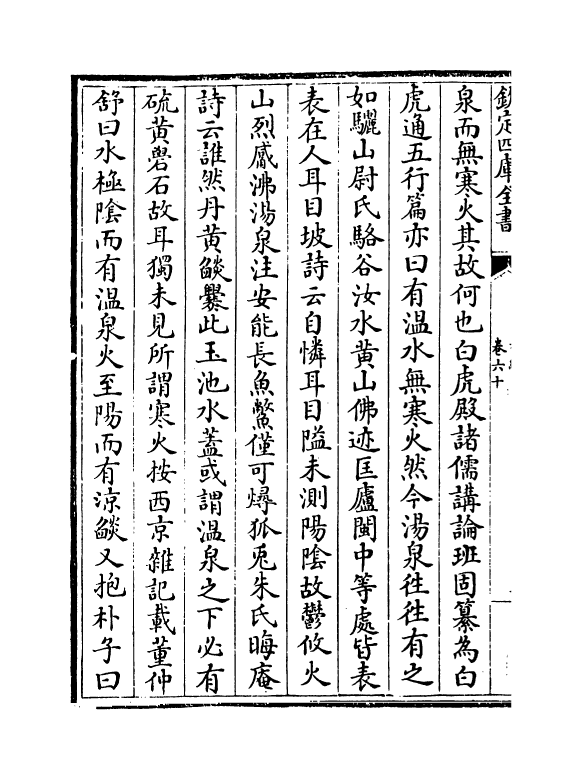 欽定四庫全書
卷六十
泉而無寒火其故何也白虎殿諸儒講論班固纂為白
虎通五行篇亦曰有温水無寒火然今湯泉往往有之
如驪山尉氏駱谷汝水黄山佛迹匡廬閩中等處皆表
表在人耳目坡詩云自憐耳目隘未測陽隂故鬱攸火
山烈觱沸湯泉注安能長魚鼈僅可燖狐兎朱氏晦庵
詩云誰然丹黄燄爨此玉池水葢或謂温泉之下必有
硫黄礜石故耳獨未見所謂寒火按西京雜記載董仲
舒曰水極隂而有温泉火至陽而有涼燄又抱朴子曰